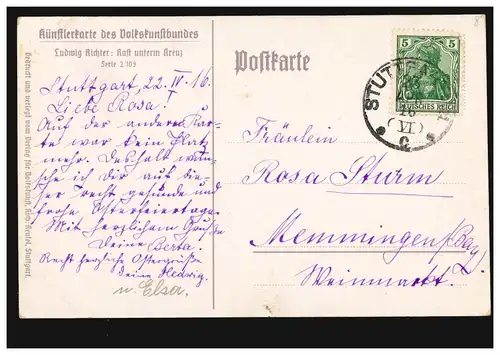 Künstlerkarte des Volkskunstbundes
Ludwig Richter: Rast unterm Kreuz
Serie 2 109
Stuttgart, 22. IV. 16.
Liebe Rosa!
Auf der anderen Kar-
te war kein Platz
mehr. Deshalb wün-
sche ich dir auf die-
ser recht gesunde und
frohe Osterfeiertage.
Mit herzlichem Gruße
Deine Berta.
Recht herzliche Ostergrüße
deine Hedwig.
u. Elsa.
Postkarte
5 5
DEUTSCHES REICH
STUTTG
16
VI
Fräulein
Rosa Sturm
Memmingen /Bay.
Weinmarkt.
Gedruckt und verlegt vom Verlag für Volkskunst, Rich. Keutel, Stuttgart.